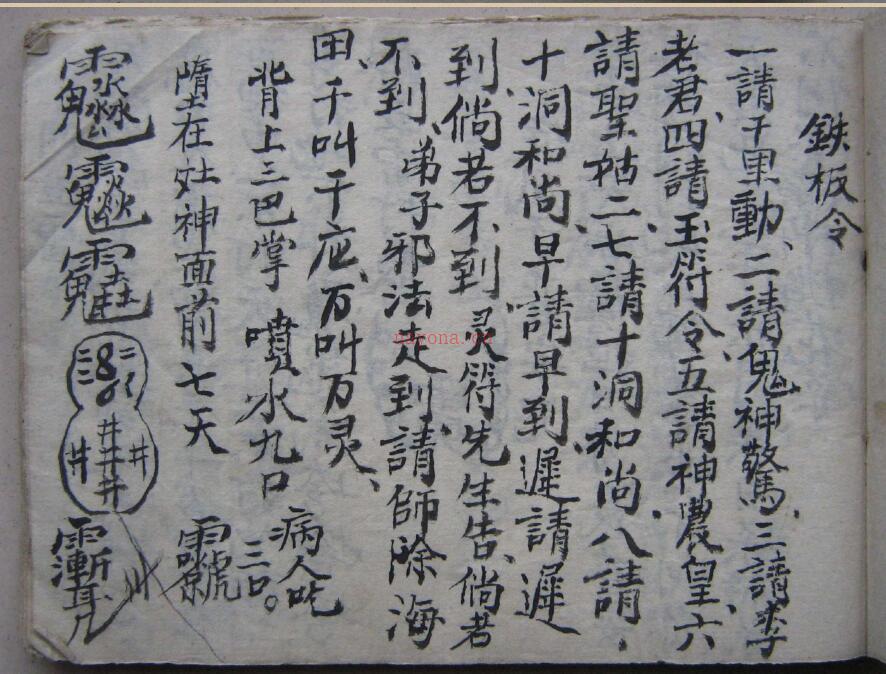 鉄板令
一請千里動、二請鬼神驚、三請李
老君、四請玉符令、五請神農皇、六
請聖姑二、七請十洞和尚、八請
十洞和尚早請早到、遲請遲
到、倘若不到、灵符先生告、倘若
不到、弟子邪法走到、請師除海
田、千叫千应、万叫万灵、
背上三巴掌 噴水九口 病人吃三口。
墮在灶神面前七天
井 井 井 井 井
nayona.cn